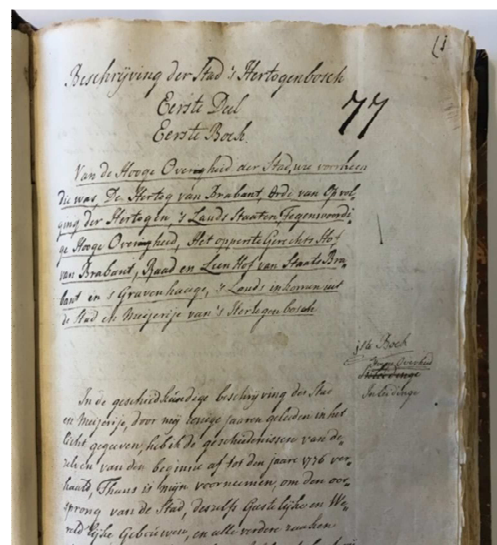 (1
Beschrijving der Stad 's Hertogenbosch
77
Eerste Deel
Eerste Boek.
Van de Hooge Overigheid der Stad, wie voorheen
die was, De Hertog van Brabant, Orde van Opvol-
ging der Hertogen 's Lands Staaten Tegenwoordi-
ge Hooge Overigheid, Het opperste Gerechts Hof
van Brabant, Raad en Leen Hof van Staats Bra-
bant en s Gravenhaage, 's Lands inkomen uit
de Stad en Meijerije van 's Hertogenbosch
1ste Boek
Hooge Overheid
Inleidinge
In de geschiedkundige beschrijving der Stad
en Meijerije, door mij eenige jaaren geleden in het
licht gegeven, heb ik de geschiedenissen van de-
zelven van den beginne af tot den jaare 1776 ver-
haald, Thans is mijn voornemen, om den oor-
sprong van de Stad, deszelfs Geestelijke en We-
reldlijke Gebouwen, en alle verdere zaaken